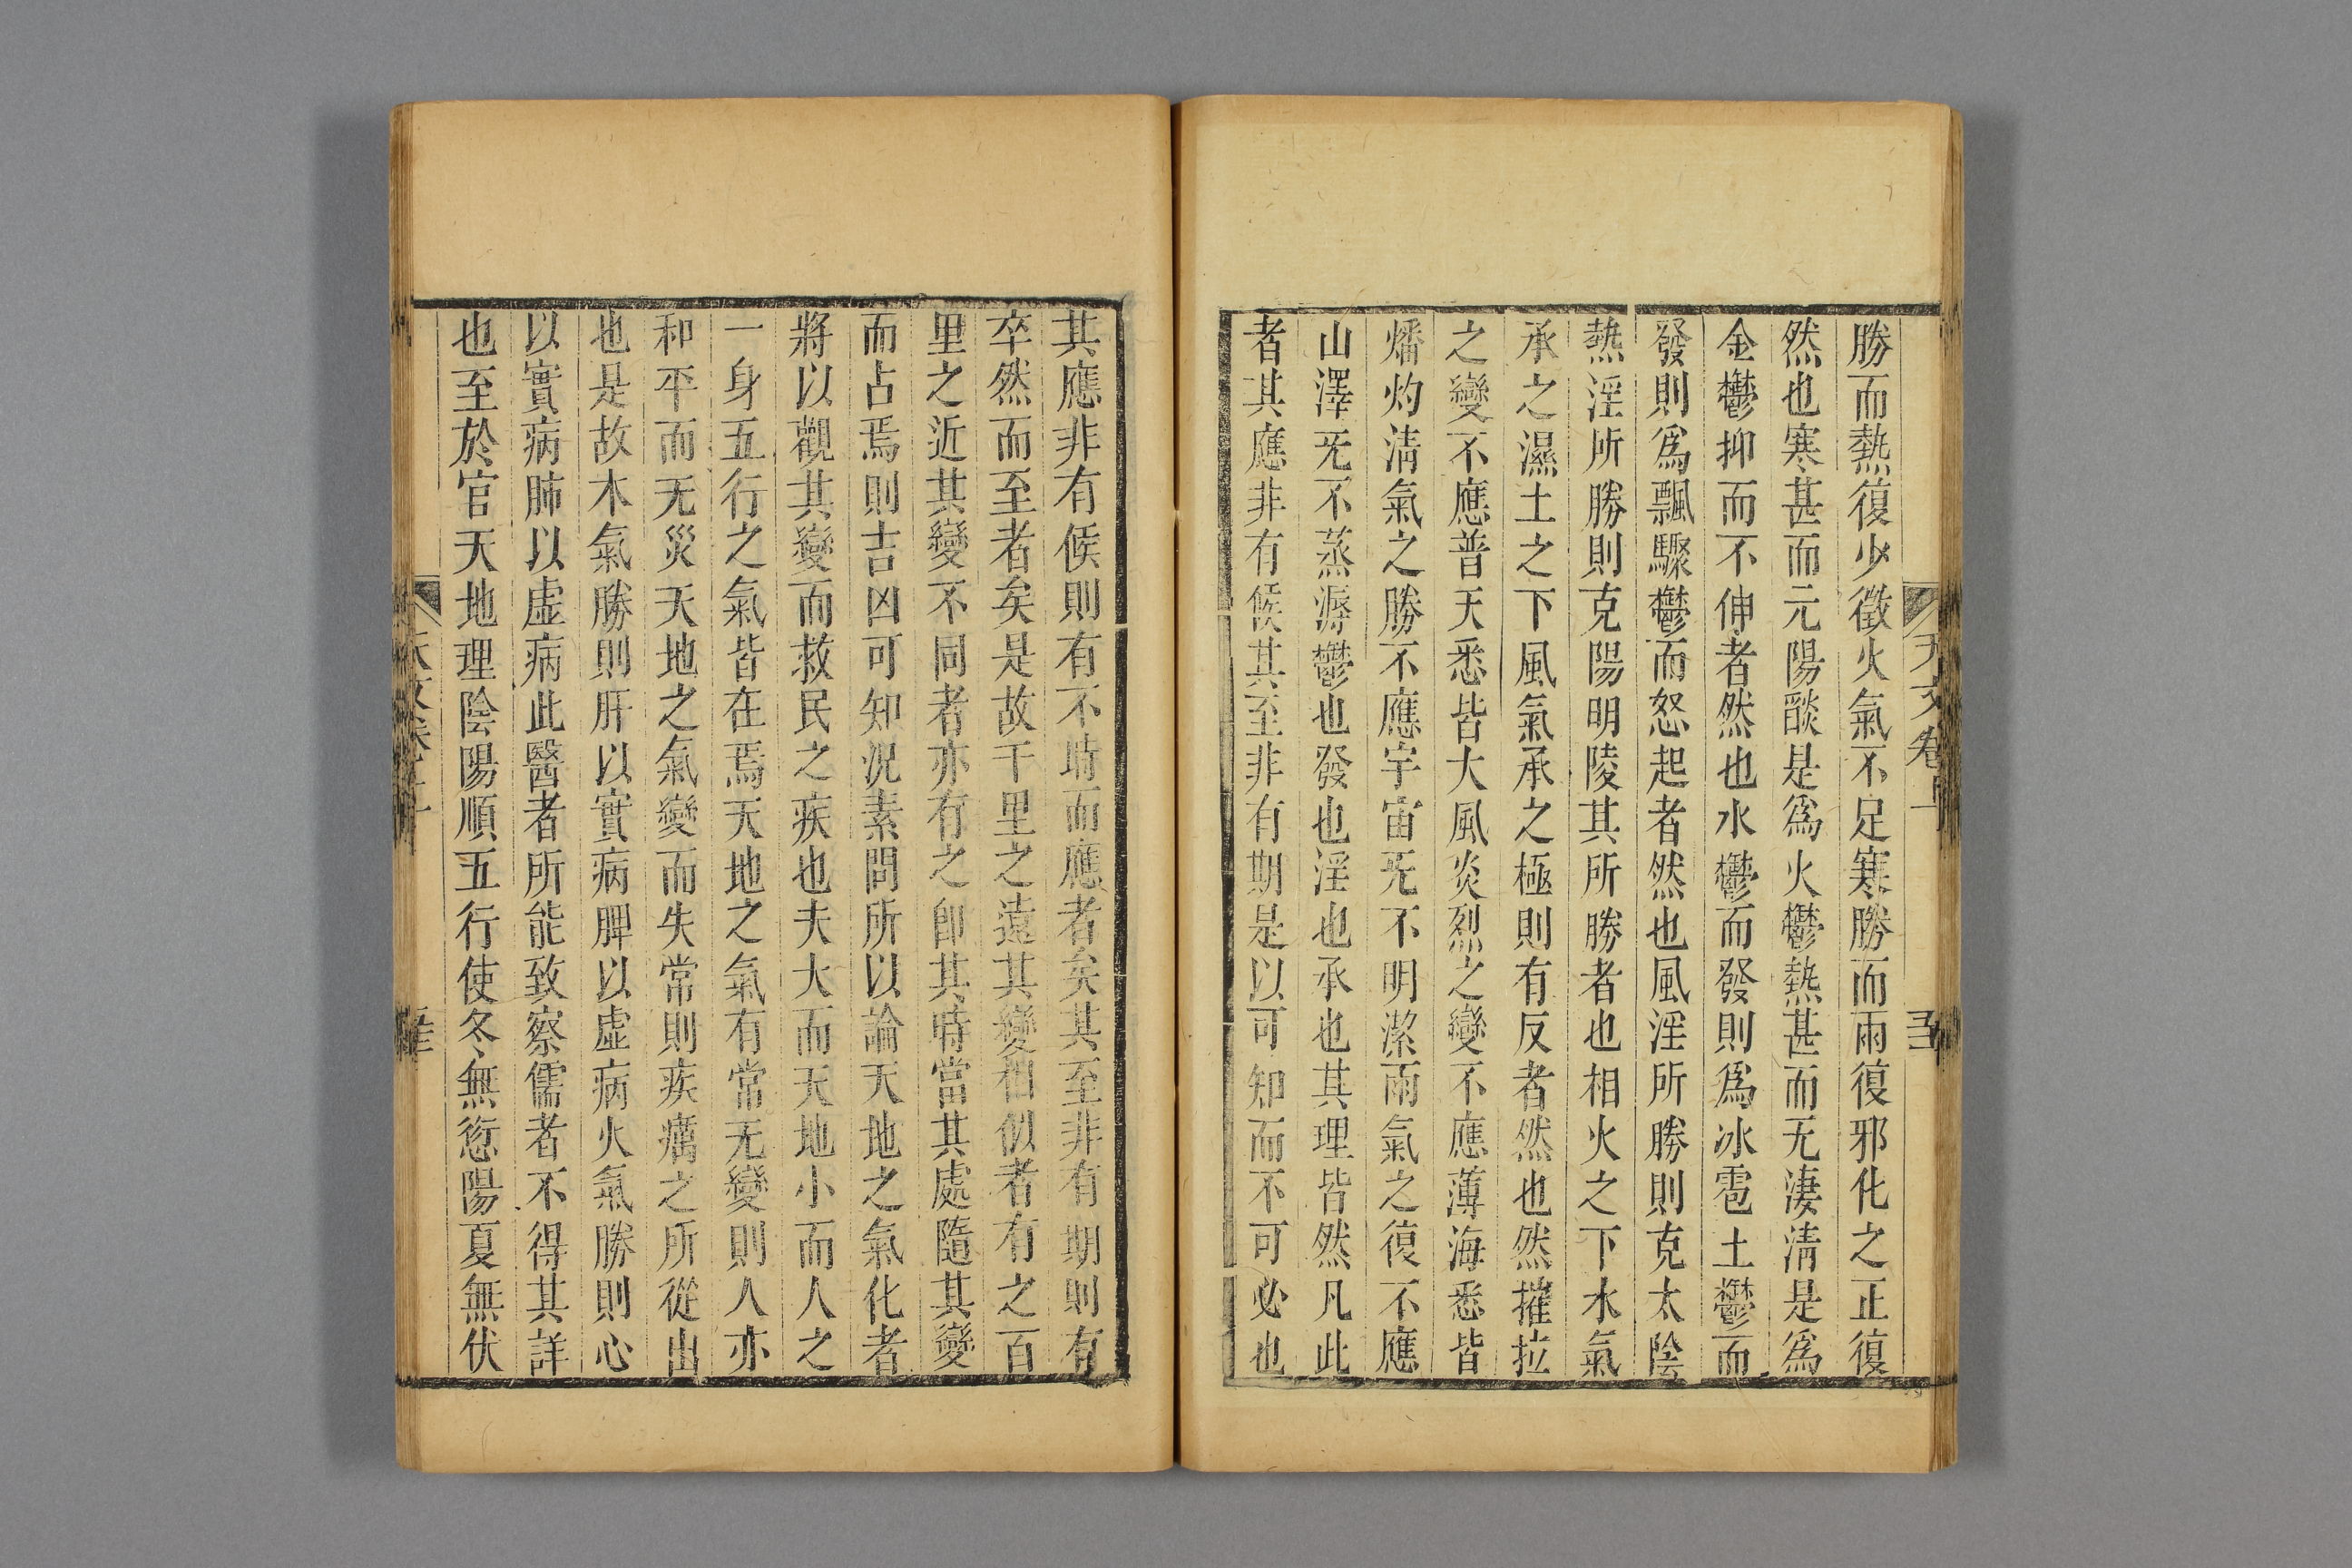 勝而熱復少徵火氣不足寒勝而雨復邪化之正復
然也寒甚而元陽燄是爲火鬱熱甚而无淒淸是爲
金鬱抑而不伸者然也水鬱而發則爲冰雹土鬱而
發則爲飄驟鬱而怒起者然也風淫所勝則克太陰
熱淫所勝則克陽明陵其所勝者也相火之下水氣
承之濕土之下風氣承之極則有反者然也然摧拉
之變不應普天悉皆大風炎烈之變不應薄海悉皆
燔灼淸氣之勝不應宇宙无不明潔雨氣之復不應
山澤无不蒸溽鬱也發也淫也承也其理皆然凡此
者其應非有候其至非有期是以可知而不可必也
其應非有候則有不時而應者矣其至非有期則有
卒然而至者矣是故千里之遠其變相似者有之百
里之近其變不同者亦有之卽其時當其處隨其變
而占焉則吉凶可知況素問所以論天地之氣化者
將以觀其變而救民之疾也夫大而天地小而人之
一身五行之氣皆在焉天地之氣有常无變則人亦
和平而无災天地之氣變而失常則疾癘之所從出
也是故木氣勝則肝以實病脾以虛病火氣勝則心
以實病肺以虛病此醫者所能致察儒者不得其詳
也至於官天地理陰陽順五行使冬無愆陽夏無伏